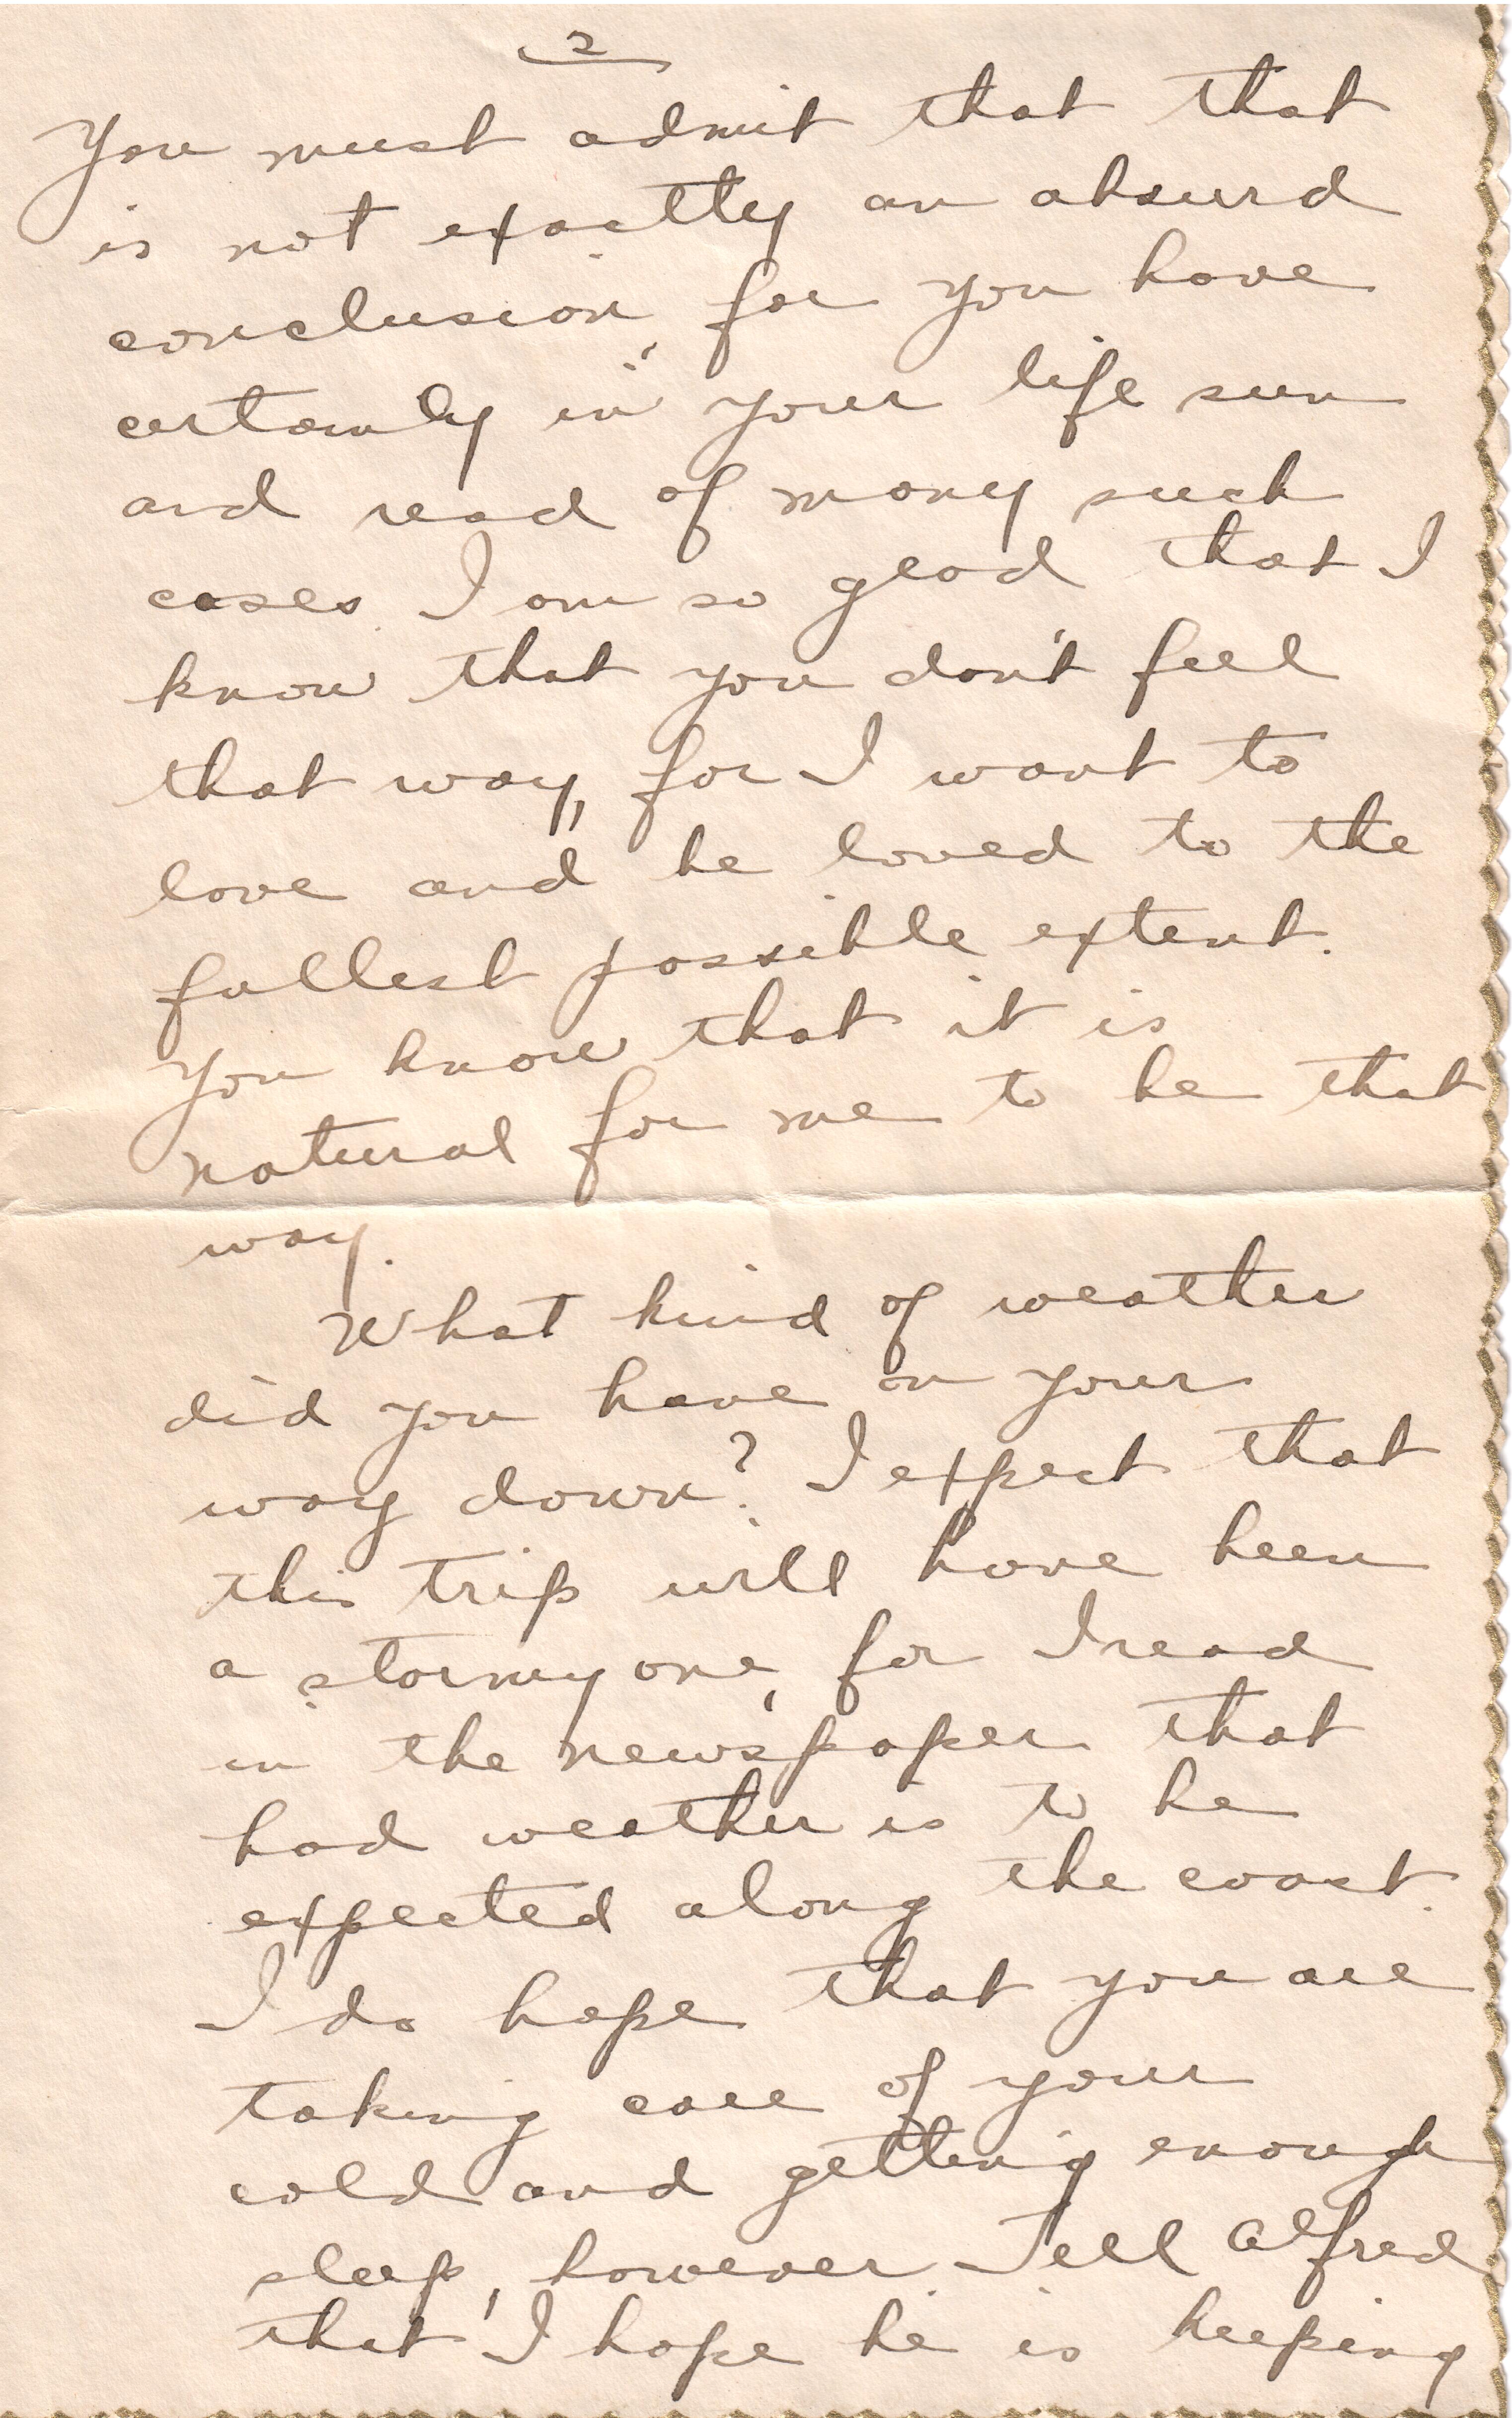 2
You must admit that that
is not exactly an absurd
conclusion, for you have
certainly in your life seen
and read of many such
cases. I am so glad that I
know that you don't feel
that way, for I want to
love and be loved to the
fullest possible extent.
You know that it is
natural for me to be that
way.
What kind of weather
did you have on your
way down? I expect that
this trip will have been
a stormy one, for I read
in the newspaper that
bad weather is to be
expected along the coast.
I do hope that you are
taking care of your
cold and getting enough
sleep, however. Tell Alfred
that I hope he is keeping